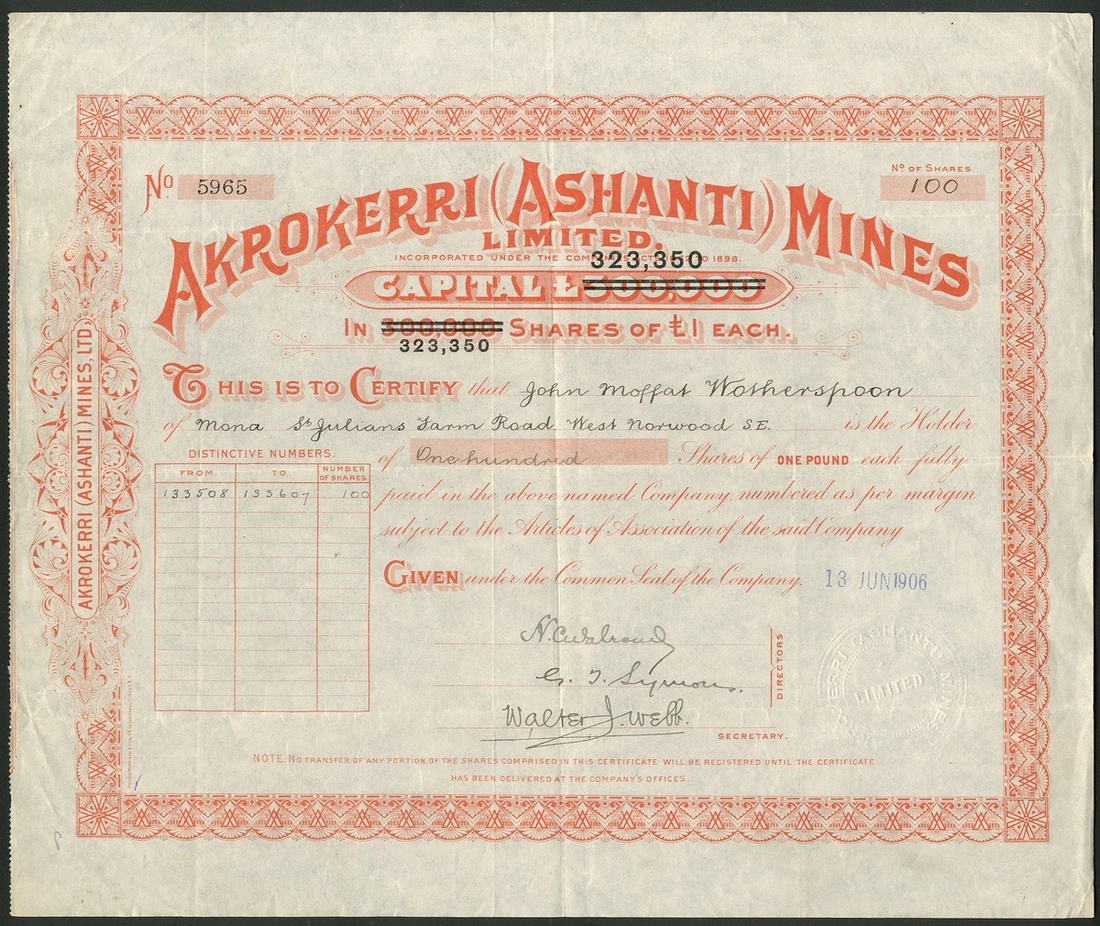 No. 5965
No. OF SHARES
100
AKROKERRI (ASHANTI) MINES
LIMITED.
INCORPORATED UNDER THE TO 1898.
323,350
CAPITAL £300,000
IN 300,000 SHARES OF £1 EACH.
323,350
THIS IS TO CERTIFY that John Moffat Wotherspoon
of Mona St Julians Farm Road. West Norwood S.E. is the Holder
of One hundred Shares of ONE POUND each fully
paid in the above named Company, numbered as per margin
subject to the Articles of Association of the said Company
DISTINCTIVE NUMBERS.
FROM. TO NUMBER OF SHARES
133508 133607 100
GIVEN under the Common Seal of the Company, 13 JUN 1906
G. T. Symons.
DIRECTORS
Walter J. Webb.
SECRETARY.
AKROKERRI (ASHANTI) MINES LIMITED
NOTE. NO TRANSFER OF ANY PORTION OF THE SHARES COMPRISED IN THIS CERTIFICATE WILL BE REGISTERED UNTIL THE CERTIFICATE
HAS BEEN DELIVERED AT THE COMPANY'S OFFICES.
AKROKERRI (ASHANTI) MINES, LTD.